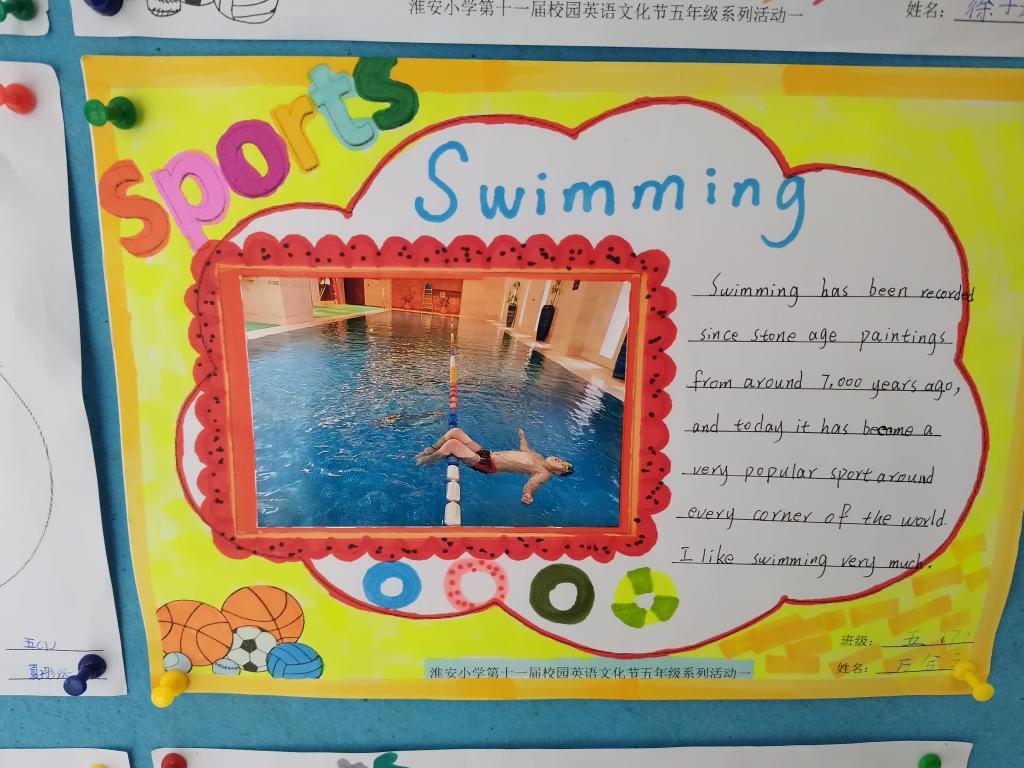 淮安小学第十一届校园英语文化节五年级系列活动一
姓名：
sports
Swimming
Swimming has been recorded
since stone age paintings
from around 7,000 years ago,
and today it has become a
very popular sport around
every corner of the world.
I like swimming very much.
五(1)
班级：五(7)
姓名：
淮安小学第十一届校园英语文化节五年级系列活动一